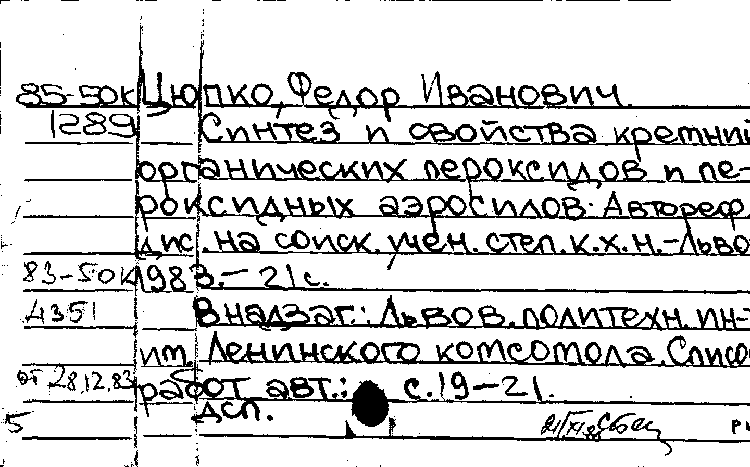 85-50к Цюпко, Федор Иванович.
1289 Синтез и свойства кремний
органических пероксидов и пе-
роксидных аэросилов: Автореф
дис. на соиск. учен. степ. к.х.н.-Льво
83-50к 1983.- 21с.
4351 В надзаг.: Львов. политехн. ин-
им. Ленинского комсомола. Списо
от 28.12.83 работ авт.: с.19-21.
5 дсп.